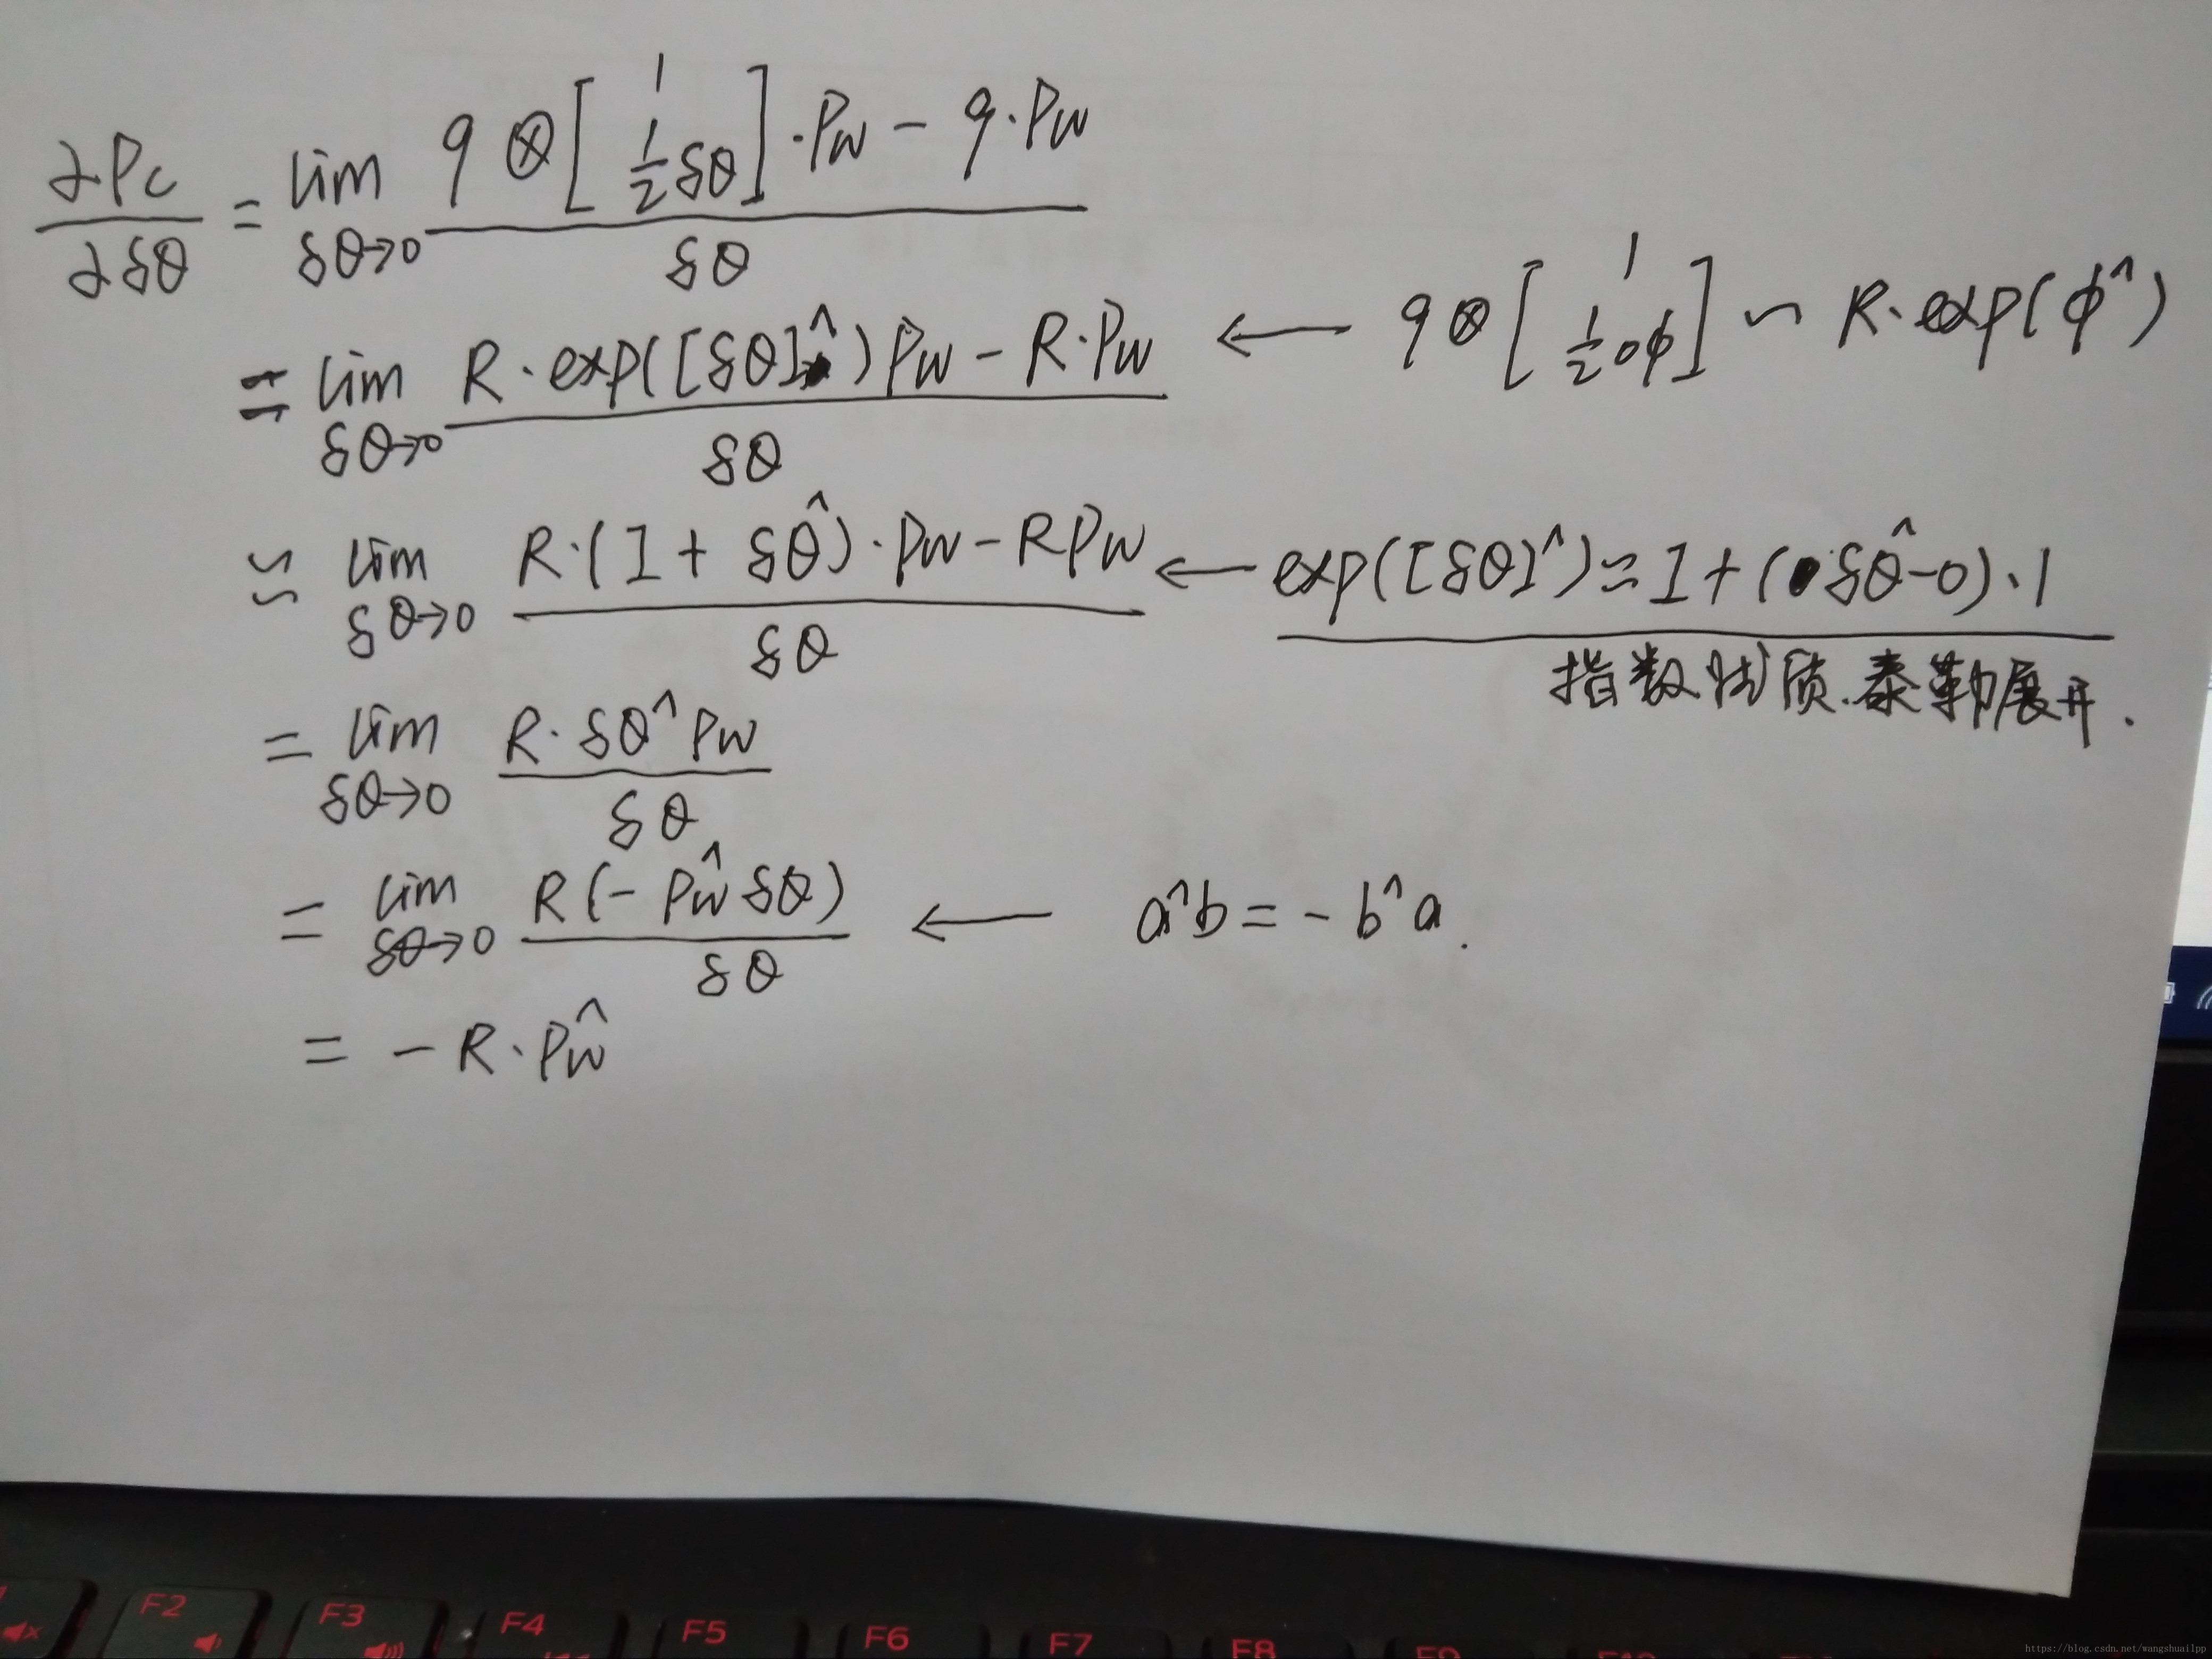 ∂Pc/∂δθ = lim δθ→0 (q ⊗ [1; ½δθ] · Pw − q · Pw) / δθ
= lim δθ→0 (R · exp([δθ]^) Pw − R · Pw) / δθ ← q ⊗ [1; ½ϕ] ∽ R · exp(ϕ^)
≈ lim δθ→0 (R · (I + δθ^) · Pw − RPw) / δθ ← exp([δθ]^) ≈ I + (δθ^ − 0) · 1
指数性质.泰勒展开.
= lim δθ→0 (R · δθ^ Pw) / δθ
= lim δθ→0 R(− Pw^ δθ) / δθ ← a^b = − b^a.
= − R · Pw^
F2 F3 F4 F5 F6 F7 F8 F9 F10
https://blog.csdn.net/wangshuailpp